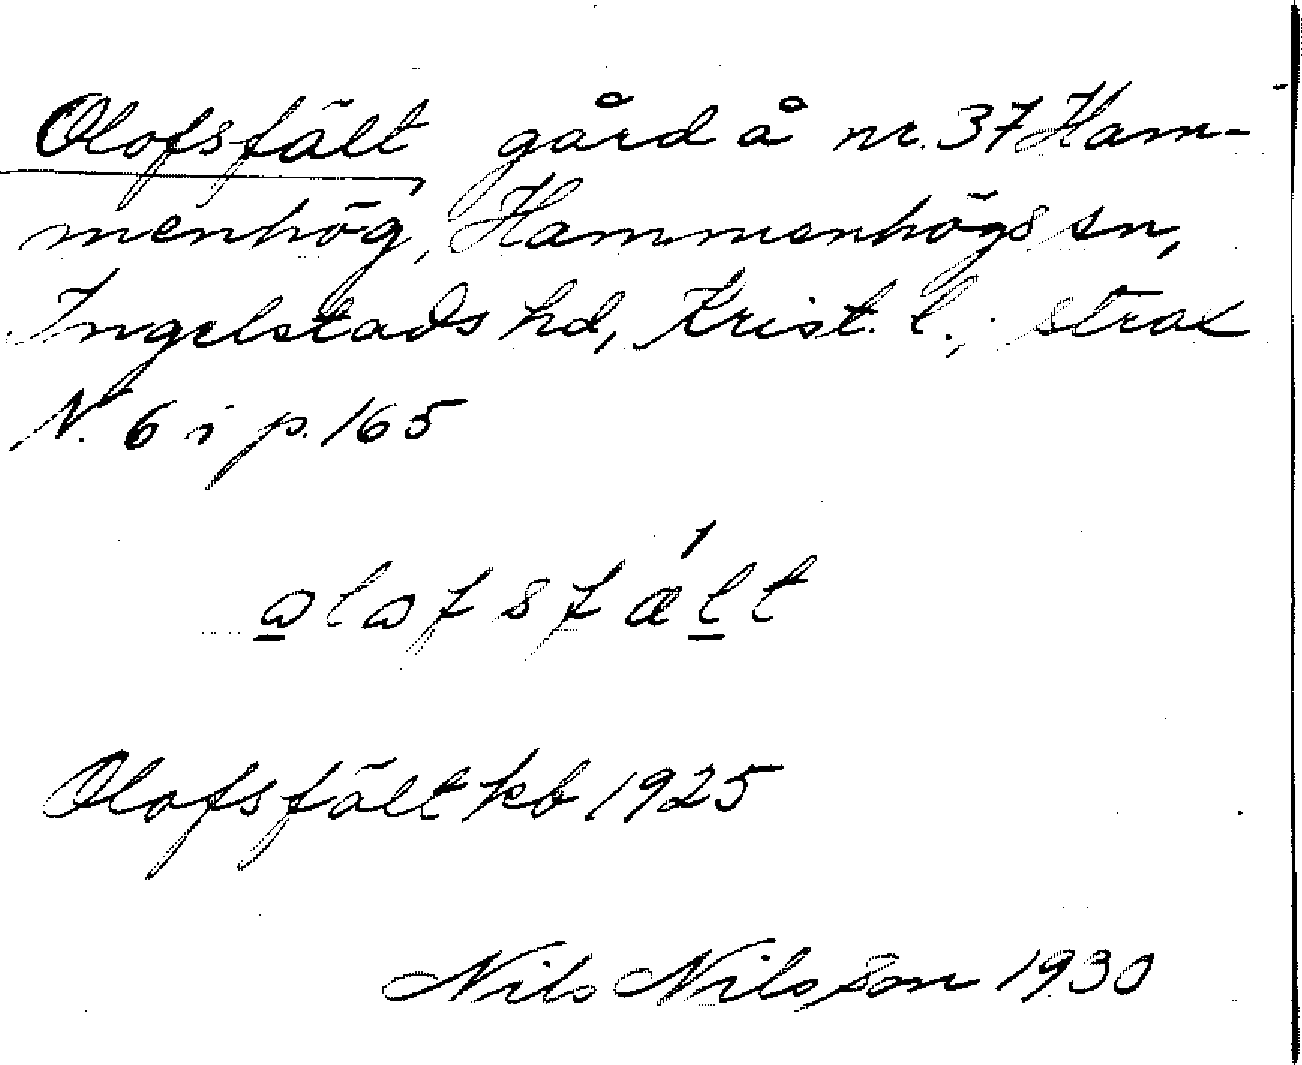 Olofsfält gård å nr. 37 Ham-
menhög, Hammenhögs sn,
Ingelstads hd, Krist. l.; strax
N. 6 i p. 165
olofsfælt
Olofsfält kb 1925
Nils Nilsson 1930